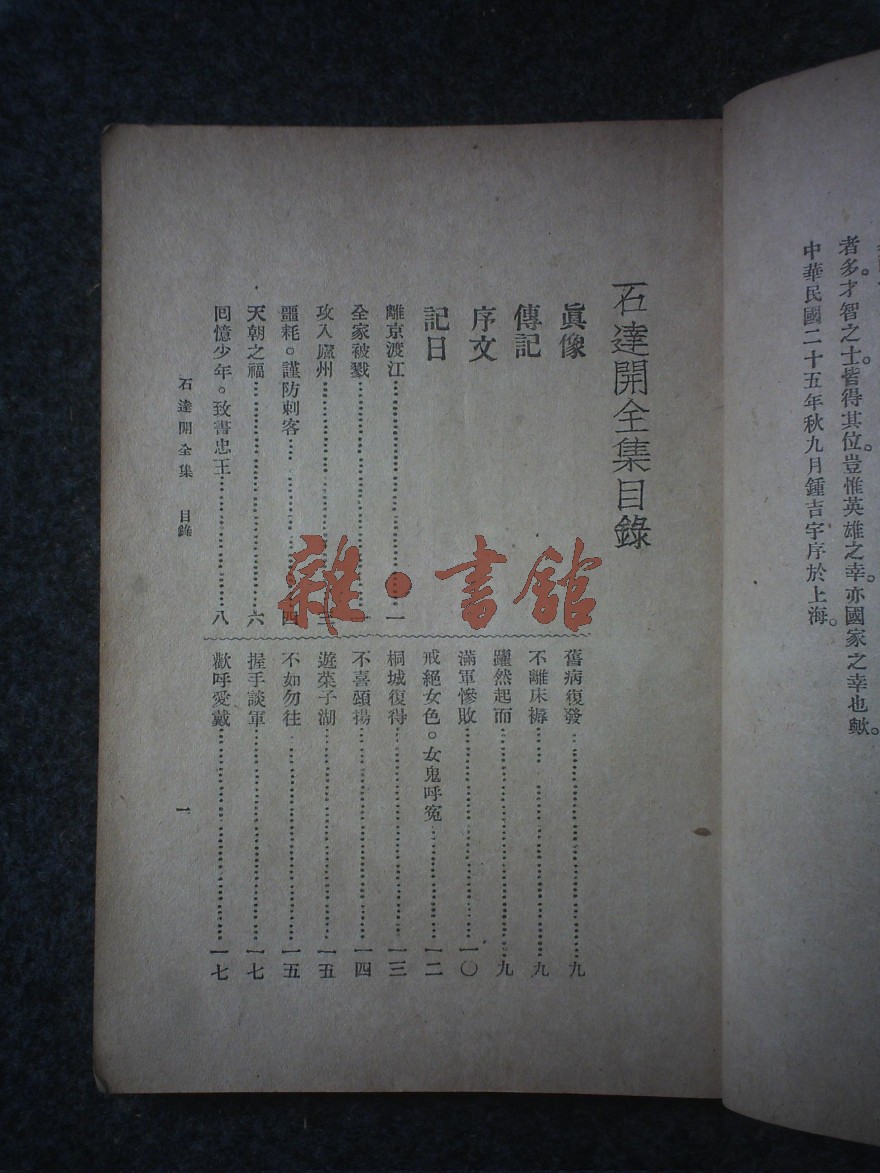 者多。才智之士。皆得其位。豈惟英雄之幸。亦國家之幸也歟。
中華民國二十五年秋九月鍾吉宇序於上海。
石達開全集目錄
眞像
傳記
序文
記日
離京渡江⋯⋯一
全家被戮⋯⋯一
攻入廬州⋯⋯三
噩耗。謹防刺客⋯⋯四
天朝之福⋯⋯六
囘憶少年。致書忠王⋯⋯八
舊病復發⋯⋯九
不離床褥⋯⋯九
躍然起而⋯⋯九
滿軍慘敗⋯⋯一〇
戒絕女色。女鬼呼冤⋯⋯一二
桐城復得⋯⋯一三
不喜頌揚⋯⋯一四
遊菜子湖⋯⋯一五
不如勿往⋯⋯一五
握手談軍⋯⋯一七
歡呼愛戴⋯⋯一七
石達開全集 目錄
一
雜·書館